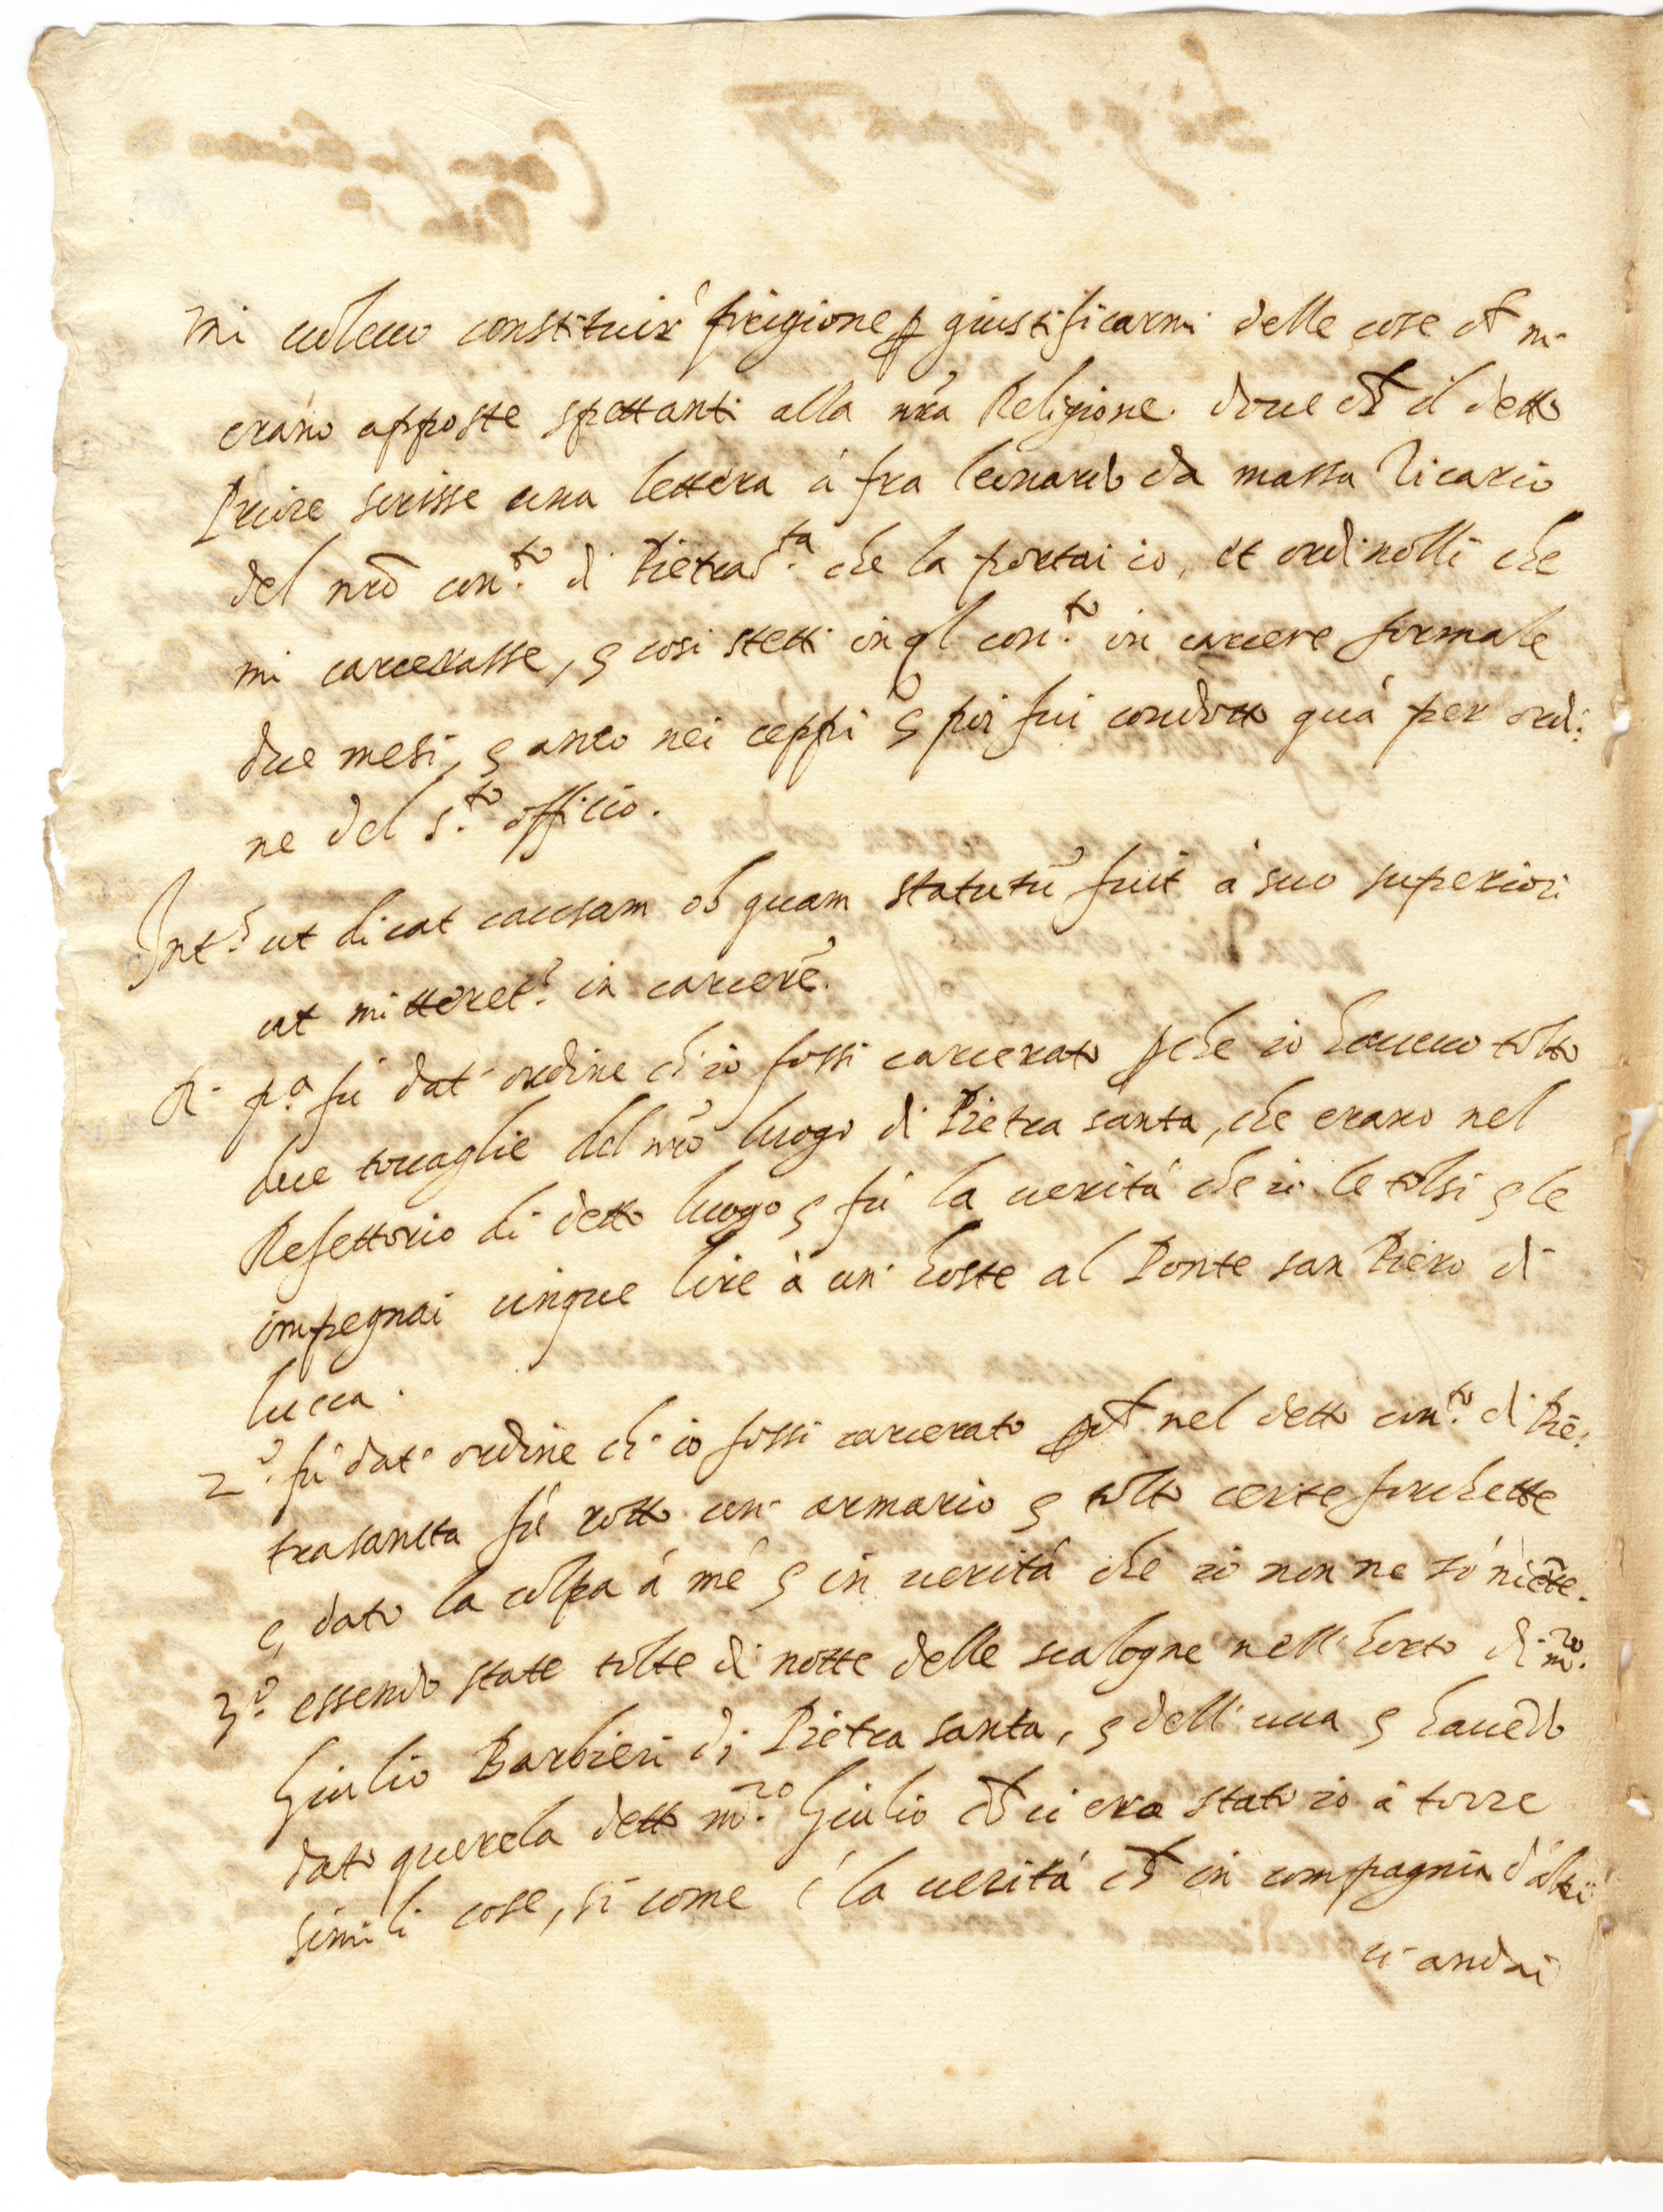 mi voleuo constituir' prigione p giustificarmi delle cose ch mi
erano apposte spettanti alla nrã Religione. doue ch il detto
Priore scrisse una lettera á fra leonardo da massa Vicario
del nrõ con.to di Pietras.ta che la portai io, et ordinolli che
mi carcerasse, e cosi stetti in ql con.to in carcere formale
due mesi, e anco nei ceppi e poi fui condotto quá per ordi:
ne del s.to officio.
Int.s ut dicat causam ob quam statutũ fuit á suo superiori
ut mitteret.r in carcerẽ.
R. p.a fú dat' ordine ch'io fossi carcerato pche io haueuo tolto
due touaglie del nrõ luogo di Pietra santa, che erano nel
Refettorio di detto luogo e fú la veritá che io le tolsi e le
impegnai cinque lire á un' hoste al Ponte san Piero di
lucca.
2.o fú dat' ordine ch'io fossi carcerato pch nel detto con.to di Pie:
trasancta fú rotto un' armario e tolto certe forchette
e, dato la colpa á mé e in veritá che io non ne só niẽte.
3.o essendo state tolte di notte delle scalogne nell'horto di m.ro
Giulio Barbieri di Pietra santa, e dell'uua e hauẽdo
dato querela detto m.ro Giulio ch ci era stato io á torre
simili cose, si come é la veritá ch in compagnia d'altri
ci andai